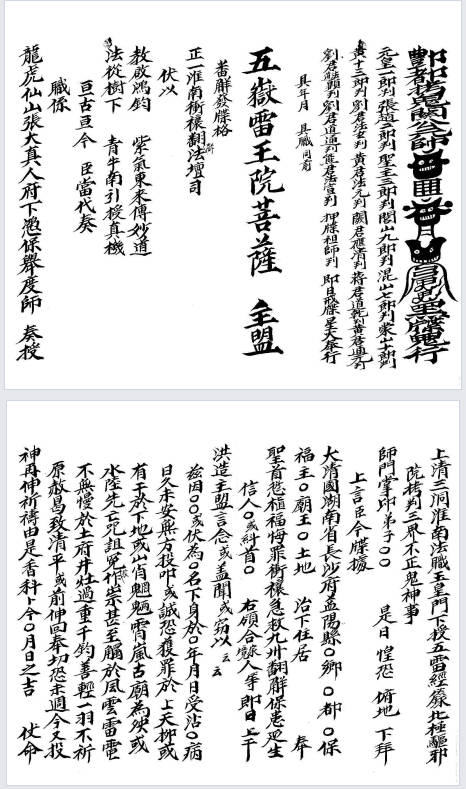 酆都拷鬼關公帥
元皇一郎判張趙二郎判聖主三郎判閭山九郎判混山七郎判東山十郎判
黃十三郎判劉君法志判黃君法元判關君應清判蔣君道乾判黃君道亮判
劉君能顯判劉君道通判龍君法宣判 押牒祖師判 即日飛牒星火奉行
具年月 具職同前
五嶽雷王院菩薩 主盟
番解發牒格
正一淮南衝禳翻解法壇司
伏以
教啟鴻鈞 紫氣東來傳妙道
法從樹下 青牛南引授真機
亘古亘今 臣當代奏
職係
龍虎仙山張大真人府下憑保舉度師 奏授
上清三洞淮南法職玉皇門下授五雷經籙北極驅邪
院拷判三界不正鬼神事
師門掌印弟子○○ 是日惶恐 俯地下拜
上言臣今牒據
大清國湖南省長沙府益陽縣○鄉○都○保
福主○廟王○土地 治下住居 奉
聖首愆植福悔罪衝禳急救九州翻解保患延生
信人○或糾首○ 右領合隊人等即日上干
洪造主盟言念或蓋聞或窃以云云
茲因○○或伏為○名下身於○年月日受沾○病
日久未安無方投叩或誠恐獲罪於上天抑或
有干於下地或山肖魍魎霄嵐古廟為殃或
水陸先亡咒咀冤家作祟甚至觸於風雲雷電
不無慢於土府井灶過重千鈞善輕一羽不祈
原赦曷致清平或前伸回奉切恐未週今又投
神再伸祈禱由是香科卜今○月日之吉 伏命